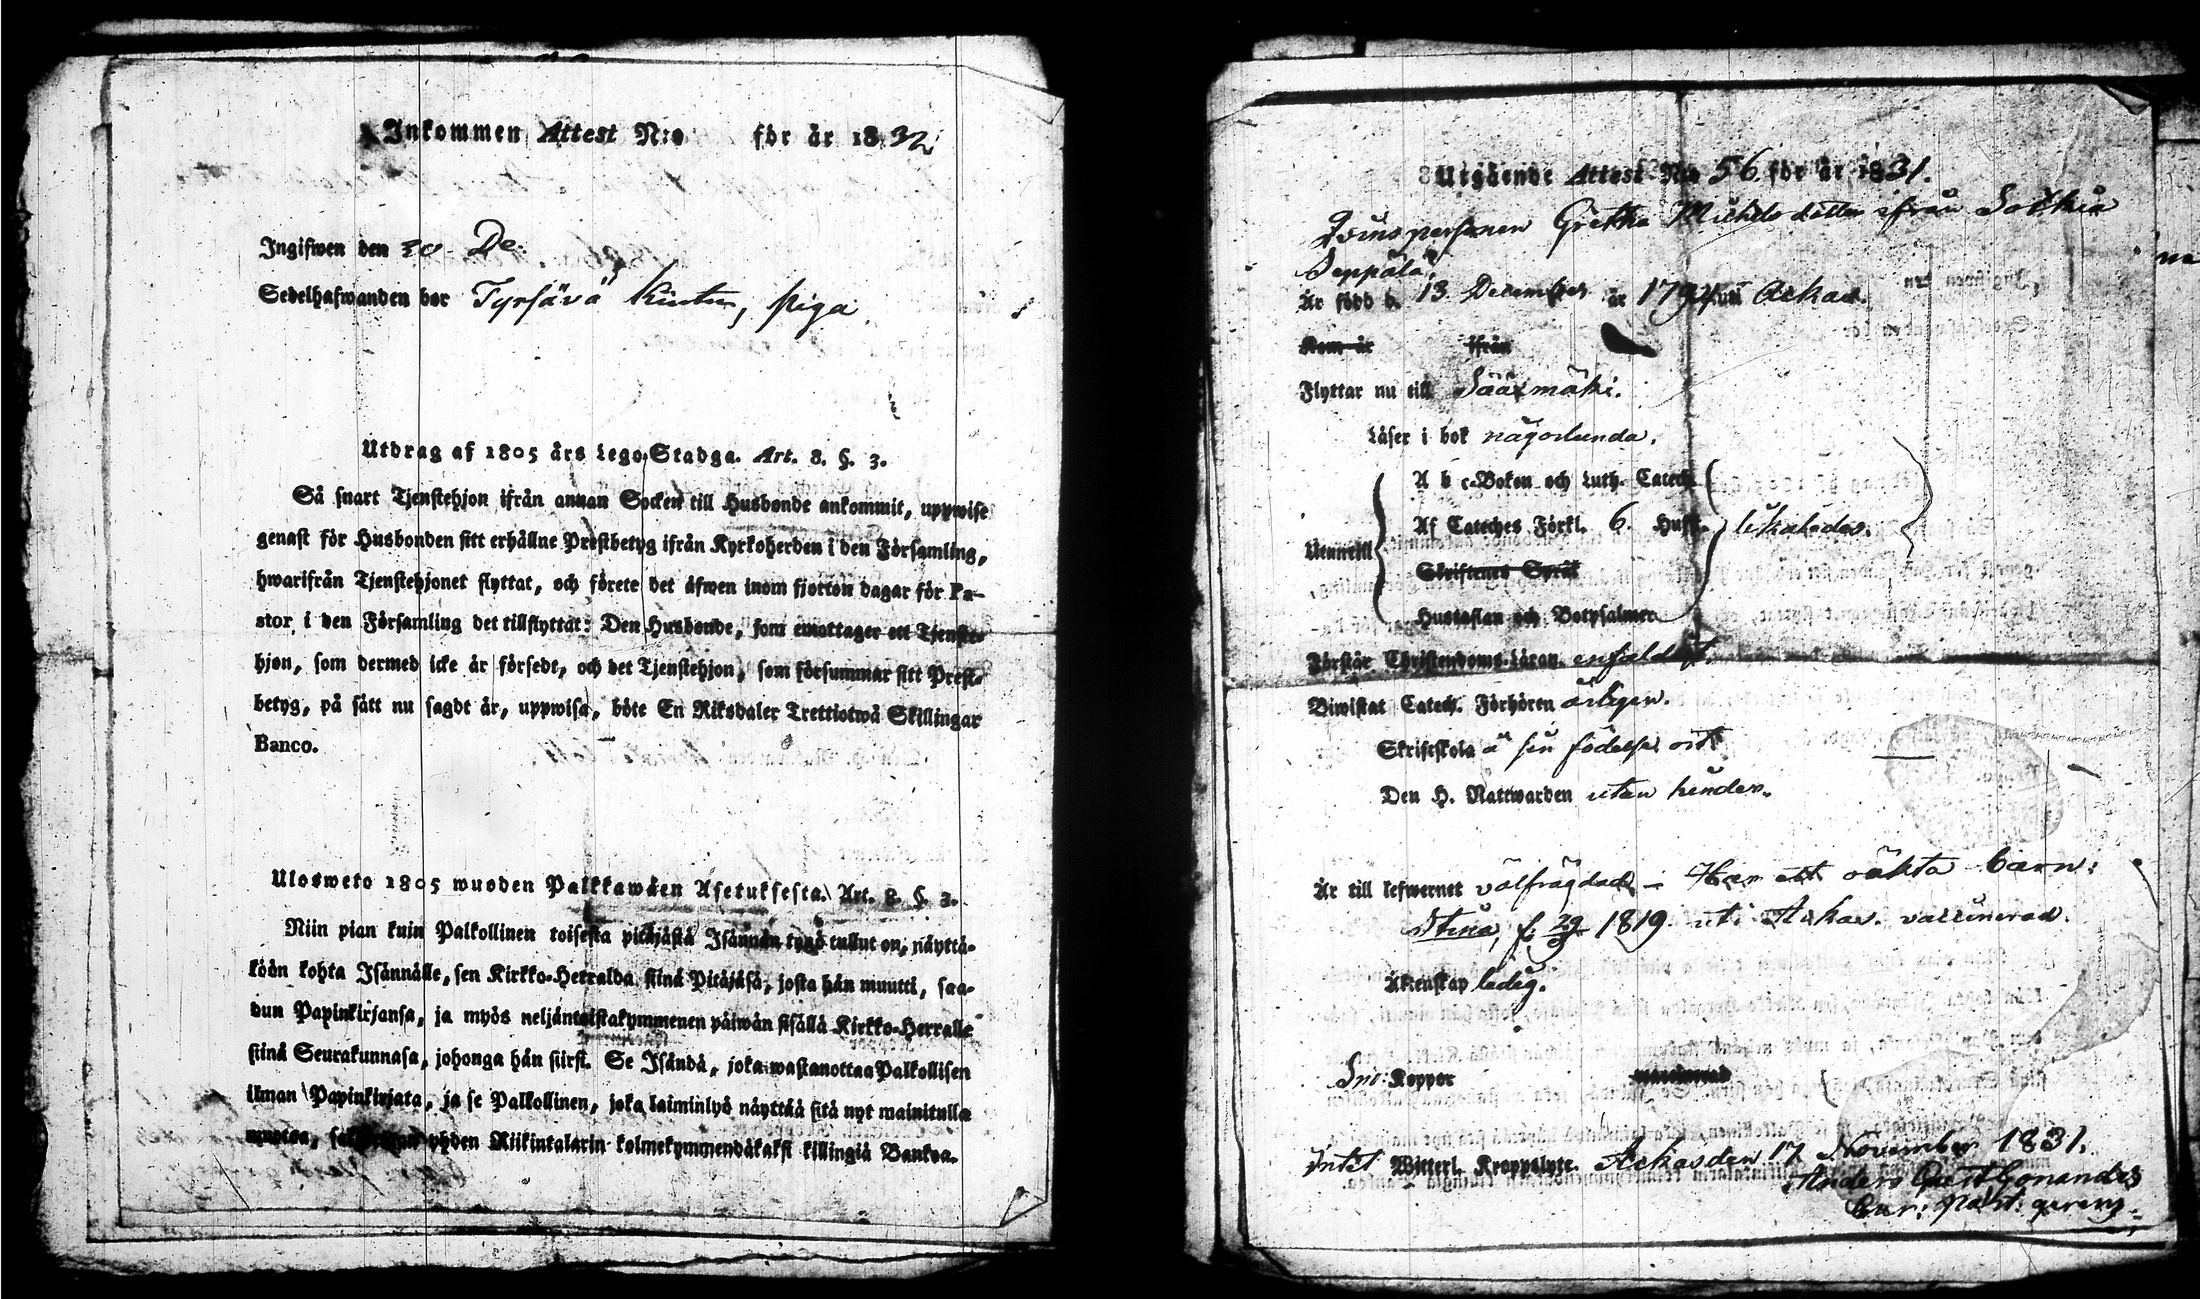 Inkommen Attest N:o för år 1832
Ingifwen den 30 De:
Sedelhafwanden bor Tyrsävä piga
Utdrag af 1805 års Lego-Stadga. Art. 8. §. 3.
Så snart Tjenstehjon ifrån annan Socken till Husbonde ankommit, uppwise
genast för Husbonden sitt erhållne Prestbetyg ifrån Kyrkoherden i den Församling,
hwarifrån Tjenstehjonet flyttat, och förete det äfwen inom fjorton dagar för Pa-
stor i den Församling det tillflyttat: Den Husbonde, som emottager ett Tjenste-
hjon, som dermed icke är försedt, och det Tjenstehjon, som försummar sitt Prest-
betyg, på sätt nu sagdt är, uppwisa, böte En Riksdaler Trettiotwå Skillingar
Banco.
Ulosweto 1805 wuoden Palkkawäen Asetuksesta. Art. 8. §. 3.
Niin pian kuin Palkollinen toisesta pitäjästä Isännän tygö tullut on, näyttä-
köön kohta Isännälle, sen Kirkko-Herralda siinä Pitäjäsä, josta hän muutti, saa-
dun Papinkirjansa, ja myös neljäntoistakymmenen päiwän sisällä Kirkko-Herralle
siinä Seurakunnasa, johonga hän siirsi. Se Isändä, joka wastanottaa Palkollisen
ilman Papinkirjata, ja se Palkollinen, joka laiminlyö näyttää sitä nyt mainitulla
muotoa, yhden Riikintalarin kolmekymmendäkaksi killingiä Bankoa.
Utgående Attest N:o 56 för år 1831.
Qvinspersonen Gretha Michelsdotter ifrån Sotkia
Seppälä,
Är född d. 13 December år 179 uti Ackas.
Kom år ifrån
Flyttar nu till Sääxmäki.
Läser i bok någorlunda.
A b c-Boken och Luth. Catech.
Af Cateches Förkl. 6. Hufst. likaledes.
Utantill
Skriftenes Språk
Hustaflan och Botpsalmer
Förstår Christendoms-Läran enfaldigt.
Biwistat Catech. Förhören årligen.
Skriftskola å sin födelse ort
Den H. Nattwarden utan hinder.
Är till lefwernet välfrägdad – Har ett oäkta barn:
Stina, f. 29/9 1819 uti Ackas. vaccinerad.
Äktenskap ledig.
Koppor vaccinerad
Intet Witterl. Kroppslyte. Ackas den 17 November 1831.
Anders Gust Gonander
Cur: past: gereng: